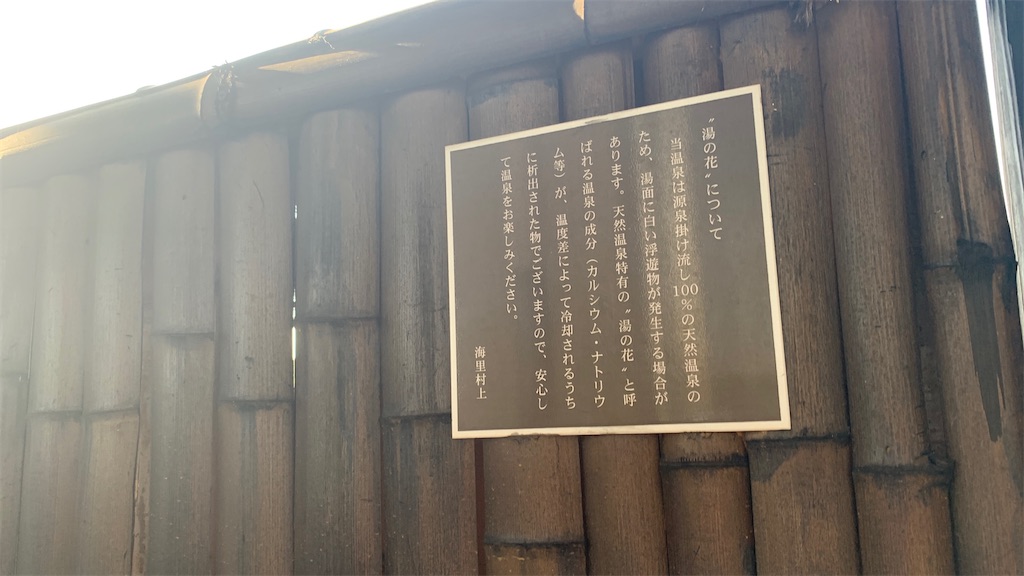 〝湯の花〟について
当温泉は源泉掛け流し100%の天然温泉の
ため、湯面に白い浮遊物が発生する場合が
あります。天然温泉特有の〝湯の花〟と呼
ばれる温泉の成分(カルシウム・ナトリウ
ム等)が、温度差によって冷却されるうち
に析出された物でございますので、安心し
て温泉をお楽しみください。
海里村上